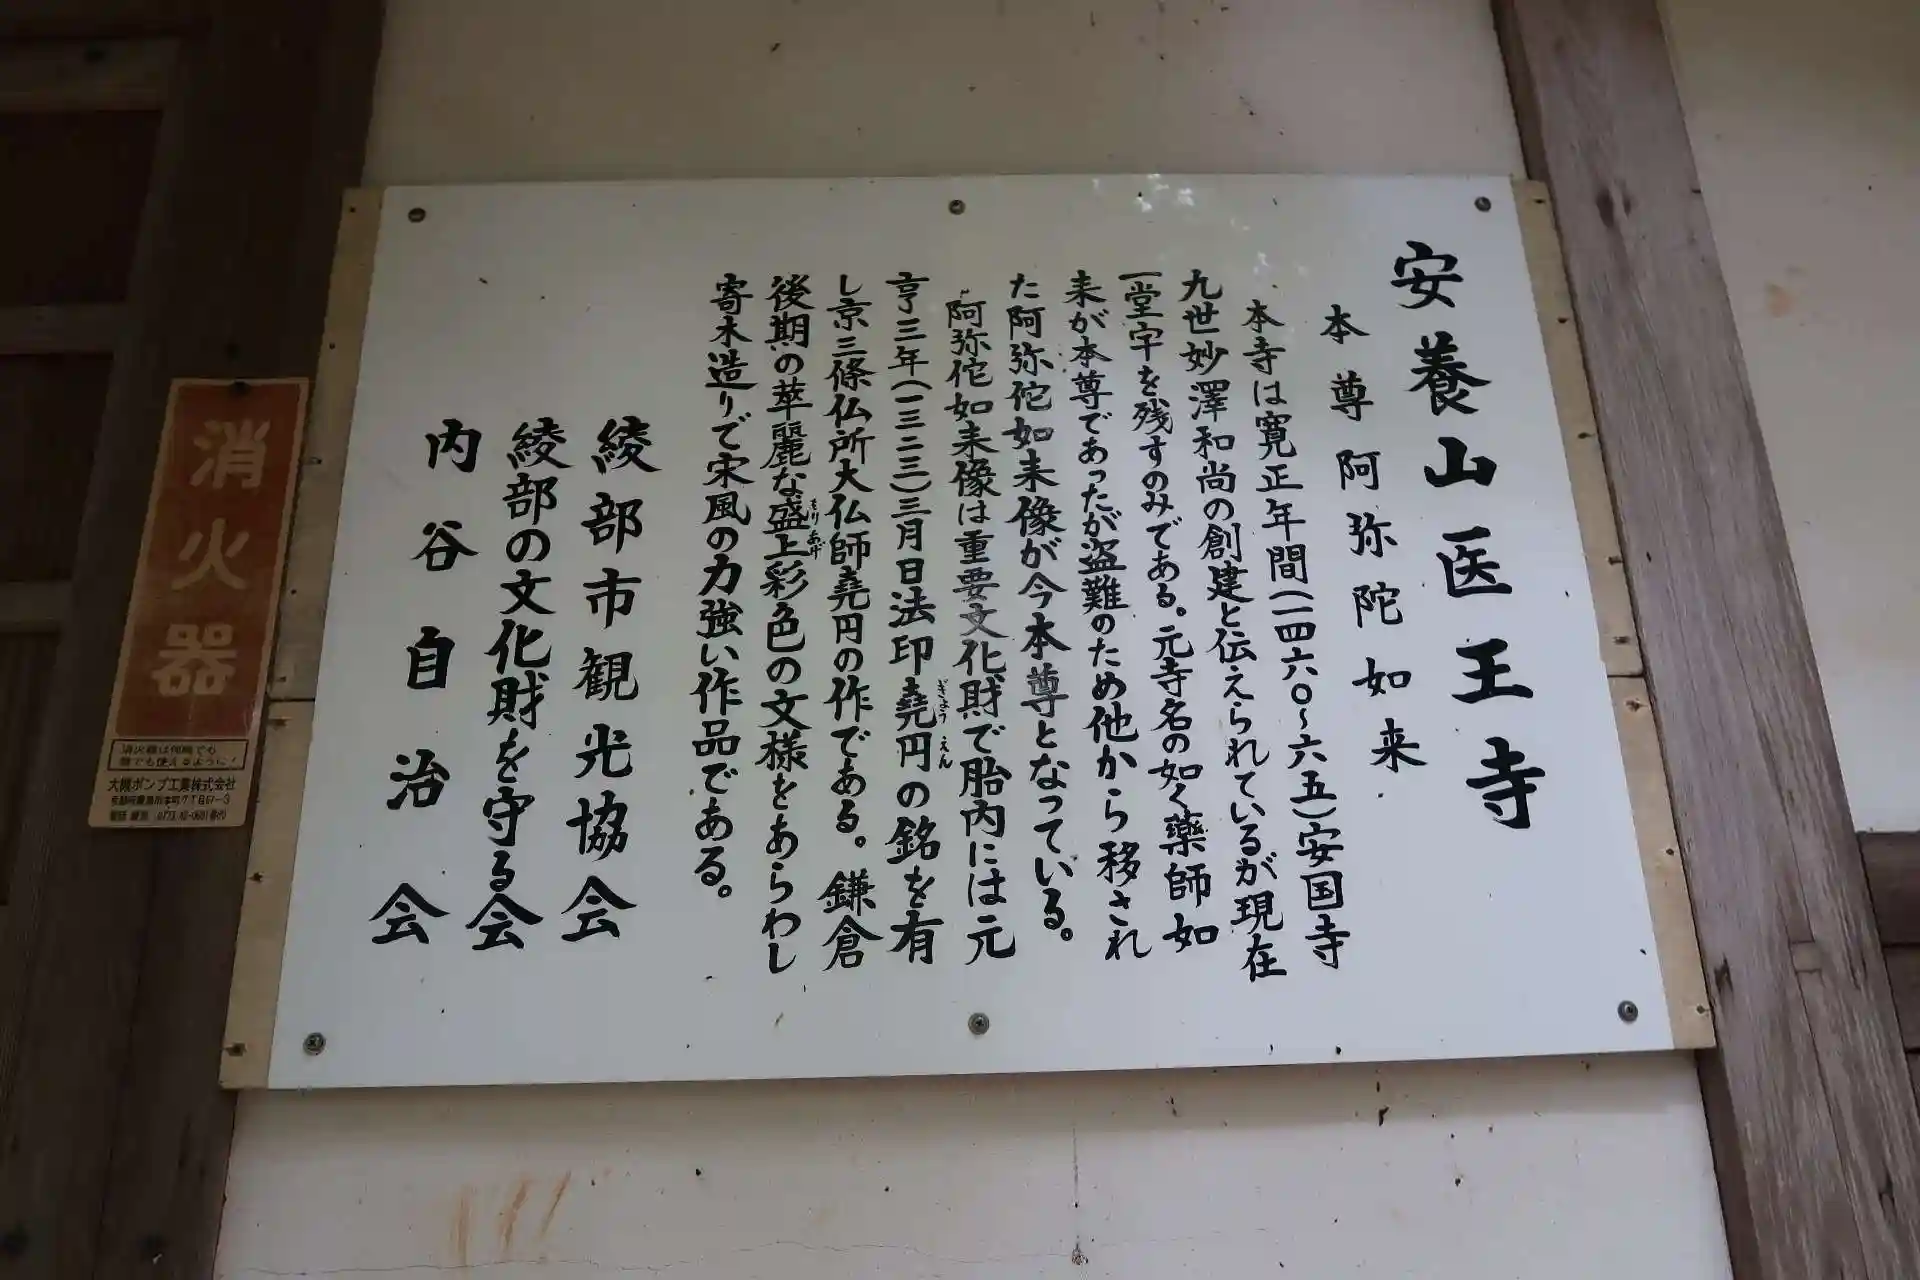 安養山医王寺
本尊阿弥陀如来
本寺は寛正年間(一四六〇~六五)安国寺
九世妙澤和尚の創建と伝えられているが現在
一堂宇を残すのみである。元寺名の如く薬師如
来が本尊であったが盗難のため他から移され
た阿弥陀如来像が今本尊となっている。
阿弥陀如来像は重要文化財で胎内には元
亨三年(一三二三)三月日法印堯円の銘を有
ぎょうえん
し京三條仏所大仏師堯円の作である。鎌倉
後期の華麗な盛上彩色の文様をあらわし
もりあげ
寄木造りで宋風の力強い作品である。
綾部市観光協会
綾部の文化財を守る会
内谷自治会
消火器
消火器は何時でも
誰でも使えるように!
大槻ポンプ工業株式会社